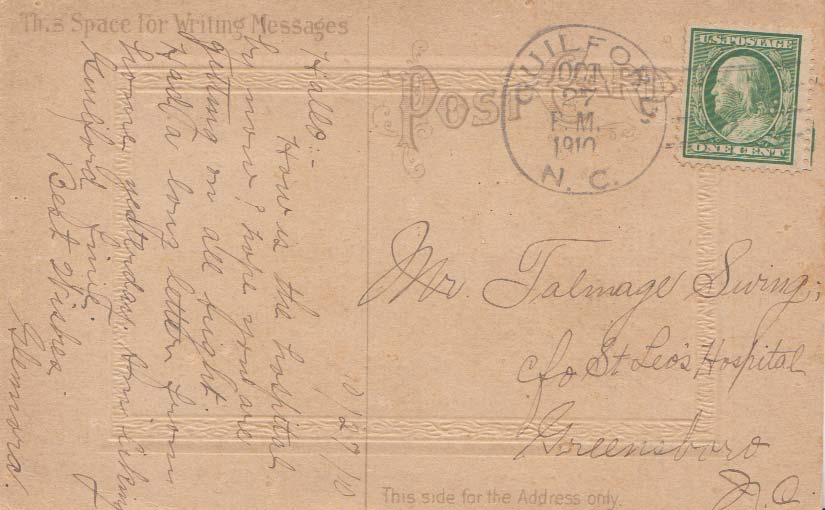 This Space for Writing Messages
POST CARD
GUILFORD,
OCT
27
P.M.
1910
N. C.
U.S. POSTAGE
ONE CENT
10/27/10
Hallo:-
How is the hospital
by now? hope you are
getting on all right
Had a long letter from
home yesterday. Am liking
Guilford fine.
Best Wishes
Glennora.
Mr. Talmage Swing,
c/o St Leo's Hospital
Greensboro
N.C.
This side for the Address only.